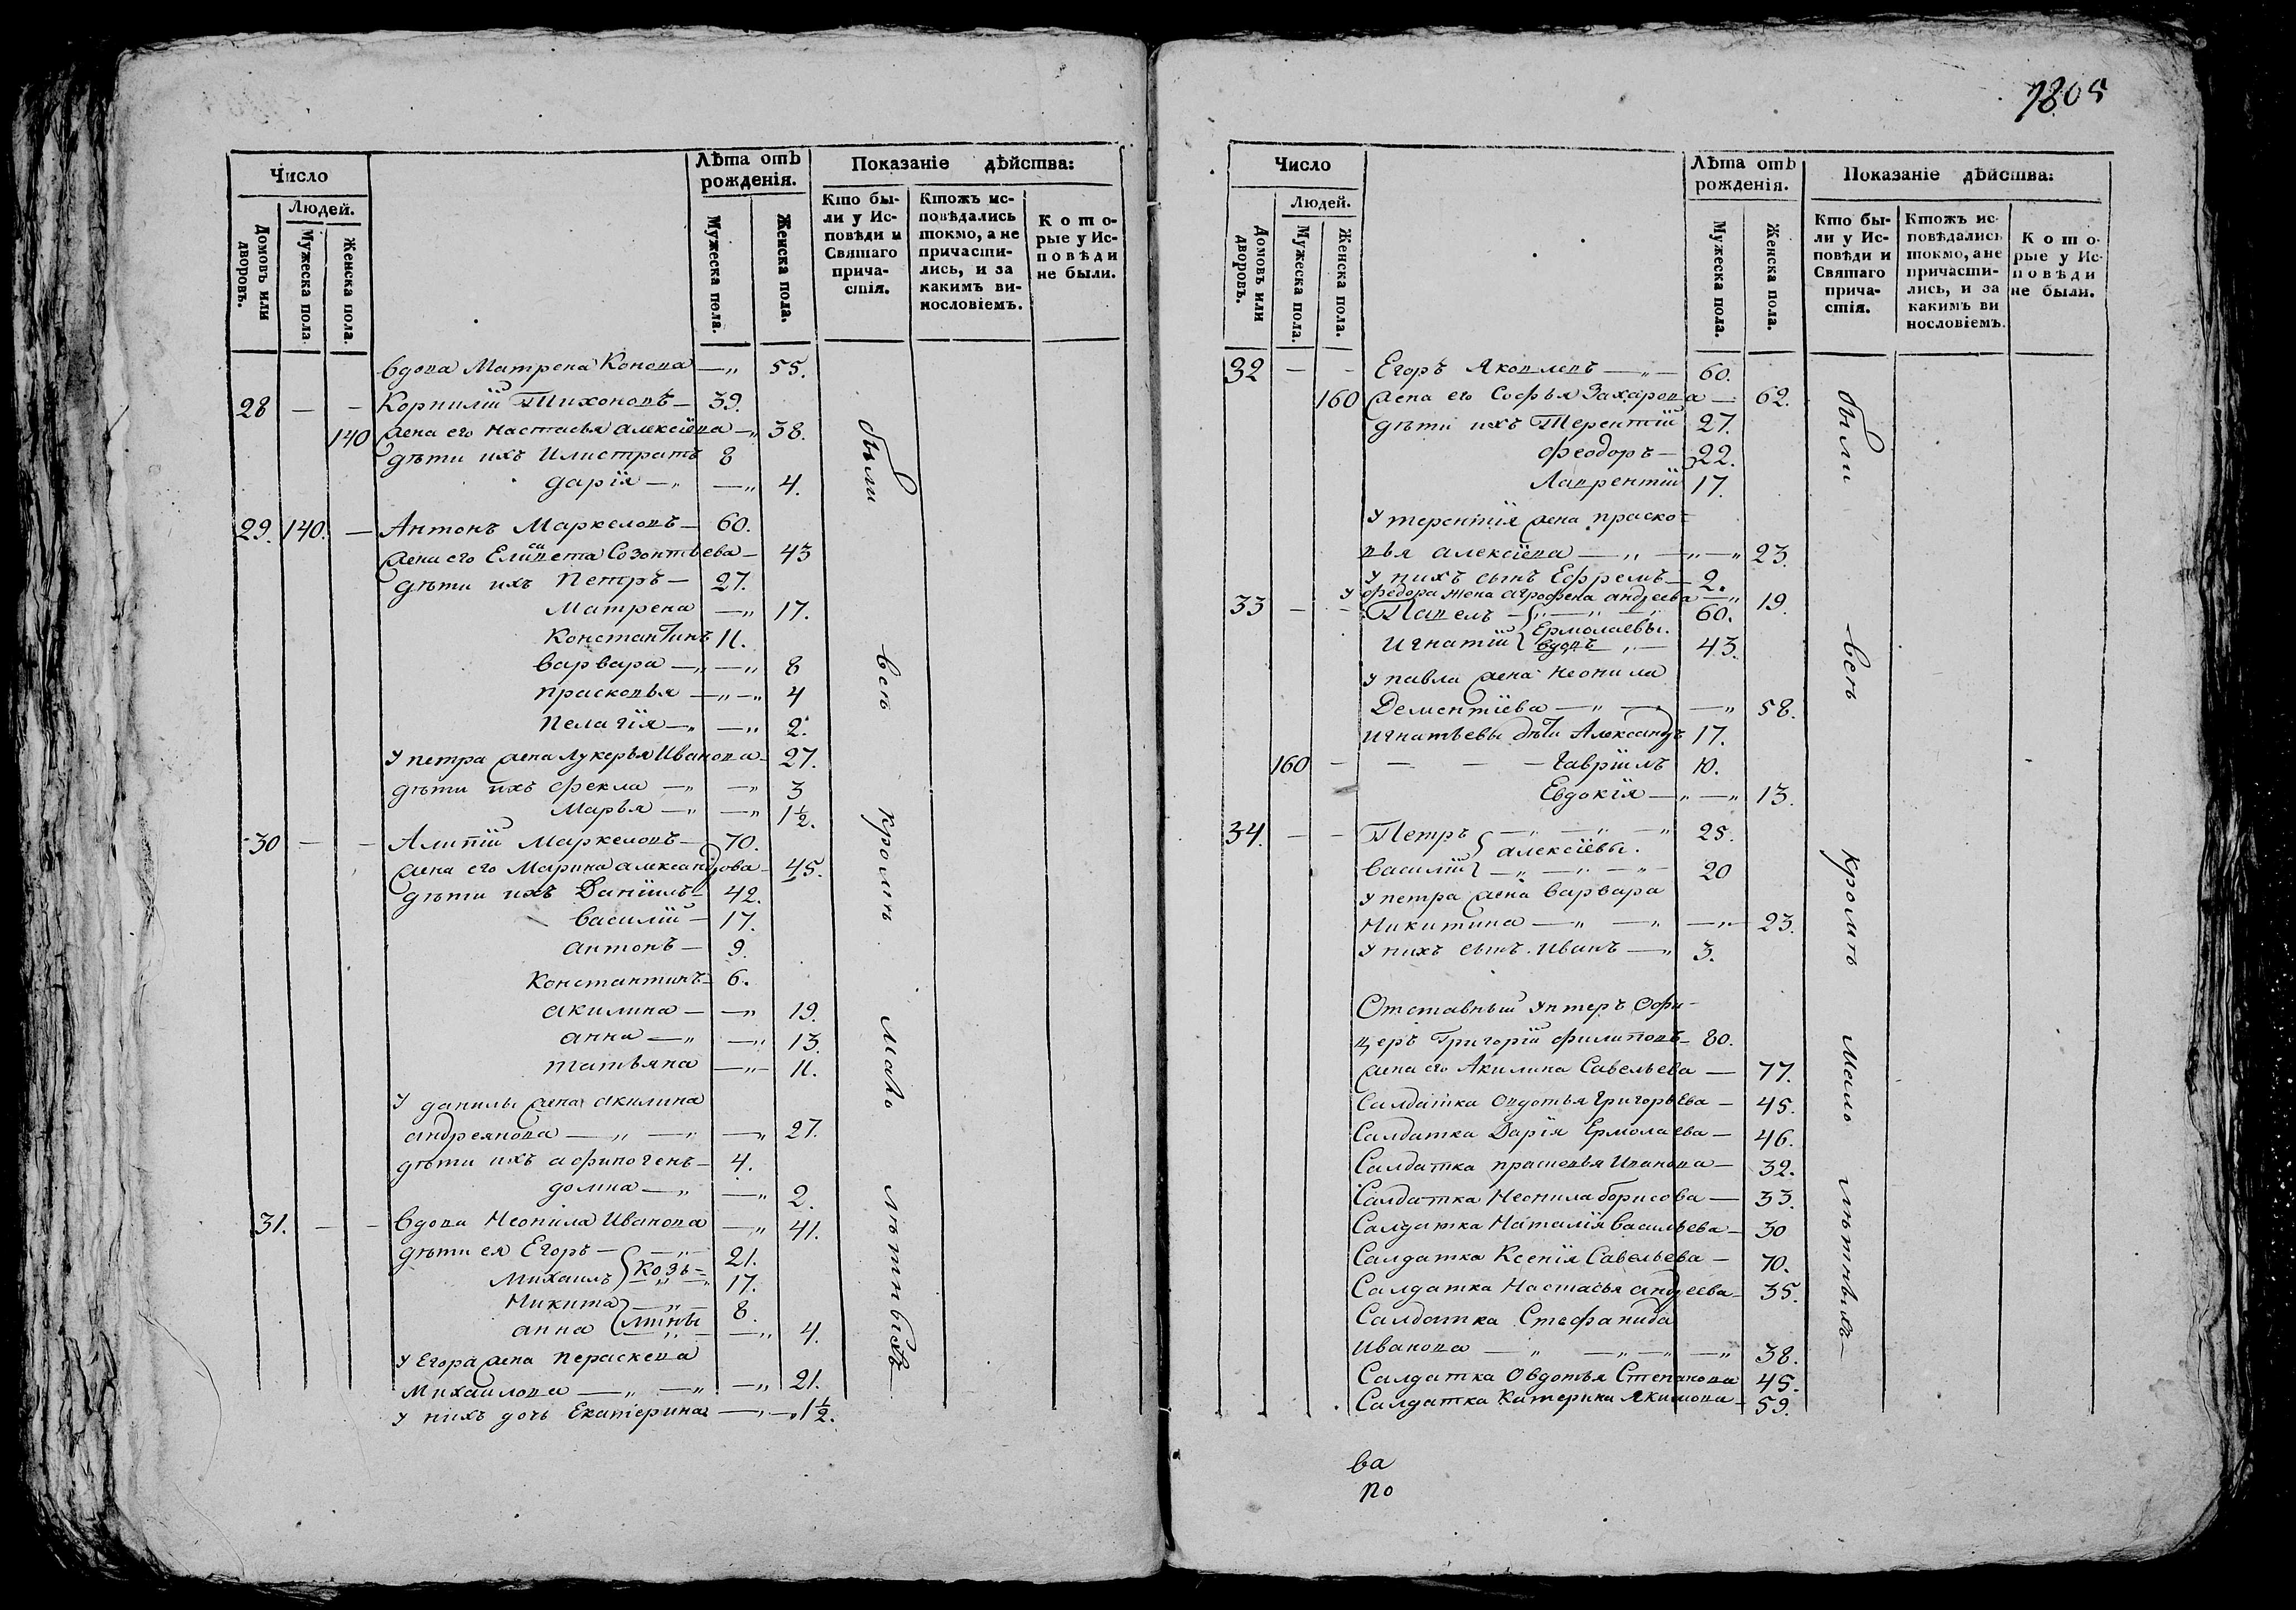 Число
Людей.
Домовъ или дворовъ.
Мужеска пола
Женска пола.
Лѣта отъ рожденія.
Мужеска пола.
Женска пола.
Показаніе дѣйства:
Кто бы-
ли у Ис-
повѣди и
Святаго
прича-
стія.
Ктожъ ис-
повѣдались
токмо, а не
причасти-
лись, и за
какимъ ви-
нословіемъ.
Кото-
рые у Ис-
повѣди
не были.
вдова Матрена Конова — 55.
28 — — Корнилій Тихоновъ — 39.
140 жена его Настасья Алексіева — 38.
дѣти ихъ Илистратъ 8
дарія — 4.
29. 140. — Антонъ Маркеловъ — 60.
жена его Елисавета Созонтьева — 43
дѣти ихъ Петръ — 27.
Матрена — 17.
Константинъ 11.
варвара — 8
прасковья — 4
Пелагія — 2.
У петра жена Лукерья Иванова 27.
дѣти ихъ фекла — 3
Марья — 1½.
30 — — Алипій Маркеловъ — 70.
жена его Марина александрова 45.
дѣти ихъ Даніилъ — 42.
василій — 17.
антонъ — 9.
Константинъ — 6.
акилина — 19.
анна — 13.
татьяна — 11.
У данилы жена акилина
андреянова — 27.
дѣти ихъ афиногенъ — 4.
домна — 2.
31. — — вдова Неонила Иванова — 41.
дѣти ея Егоръ — 21.
Михаилъ Козь= 17.
Никита 8.
анна мины — 4.
У Егора жена Пераскева
Михаилова — 21.
У нихъ дочь Екатерина — 1½.
были
всѣ
кромѣ
мало
лѣтныхъ
1805
Число
Людей.
Домовъ или дворовъ.
Мужеска пола.
Женска пола.
Лѣта отъ рожденія.
Мужеска пола.
Женска пола.
Показаніе дѣйства:
Кто бы-
ли у Ис-
повѣди и
Святаго
прича-
стія.
Ктожъ ис-
повѣдались
токмо, а не
причасти-
лись, и за
какимъ ви
нословіемъ.
Кото-
рые у Ис-
повѣди
не были.
32 — - Егоръ Яковлевъ — 60.
160 жена его Софья Захарова — 62.
дѣти ихъ Терентій 27.
феодоръ — 22.
Лаврентій 17.
У терентія жена праско=
вья алексіева — 23.
У нихъ сынъ Ефремъ — 2.
У федора жена агрофена андреева — 19.
33 — - Павелъ — 60.
Ермолаевы.
Игнатій вдовъ — 43.
У павла жена Неонила
Дементіева — 58.
Игнатьевы дѣти Александръ 17.
160 — Гавріилъ 10.
Евдокія — 13.
34. — - Петръ — 25.
алексіевы.
василій — 20
У петра жена варвара
Никитина — 23.
У нихъ сынъ Иванъ — 3.
Отставный Унтеръ Офи-
церъ Григорій филиповъ — 80.
жена его Акилина Савельева — 77.
Салдатка Овдотья Григорьева — 45.
Салдатка Дарія Ермолаева — 46.
Салдатка прасковья Иванова — 32.
Салдатка Неонила борисова — 33.
Салдатка Наталія васильева — 30
Салдатка Ксенія Савельева — 70.
Салдатка Настасья андреева — 35.
Салдатка Стефанида
Иванова — 38.
Салдатка Овдотья Степанова 45.
Салдатка Катерина Якимова — 59.
были
всѣ
кромѣ
мало
лѣтныхъ
ва
по